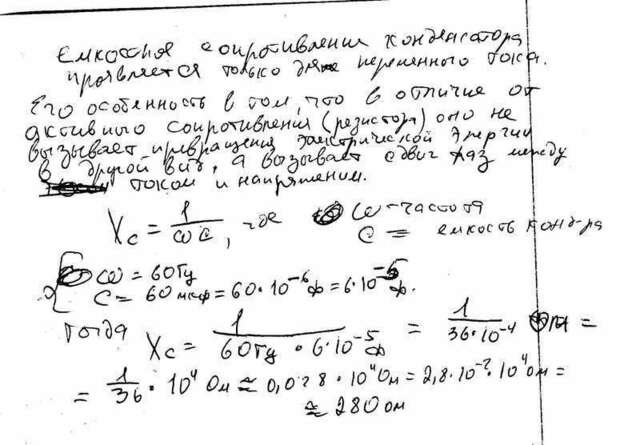 Емкостное сопротивление конденсатора
проявляется только для переменного тока.
Его особенность в том, что в отличие от
активного сопротивления (резистора) оно не
вызывает превращения электрической энергии
в другой вид, а возывает сдвиг фаз между
током и напряжением.
Xc = 1/ωC, где ω - частота
C = емкость конд-ра
ω = 60 Гц
C = 60 мкф = 60·10⁻⁶ ф = 6·10⁻⁵ ф.
тогда Xc = 1/(60 Гц · 6·10⁻⁵ ф) = 1/(36·10⁻⁴) Ом =
= 1/36 · 10⁴ Ом ≈ 0,028 · 10⁴ Ом = 2,8·10⁻²·10⁴ Ом =
≈ 280 ом